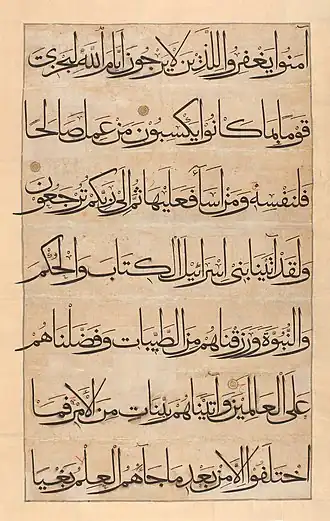 آمنوا يغفروا للذين لا يرجون أيام الله ليجزي
قوما بما كانوا يكسبون من عمل صالحا
فلنفسه ومن أسا فعليها ثم إلى ربكم ترجعون
ولقد آتينا بني اسرائيل الكتاب والحكم
والنبوة ورزقناهم من الطيبات وفضلناهم
على العالمين وآتيناهم بينات من الأمر فما
اختلفوا الا من بعد ما جاءهم العلم بغيا